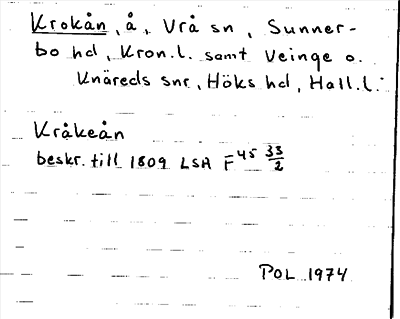 Krokån, å, Vrå sn, Sunner-
bo hd, Kron.l. samt Veinge o.
Knäreds snr, Höks hd, Hall.l.
Kråkeån
beskr. till 1809 LSA F45 33/2
POL 1974